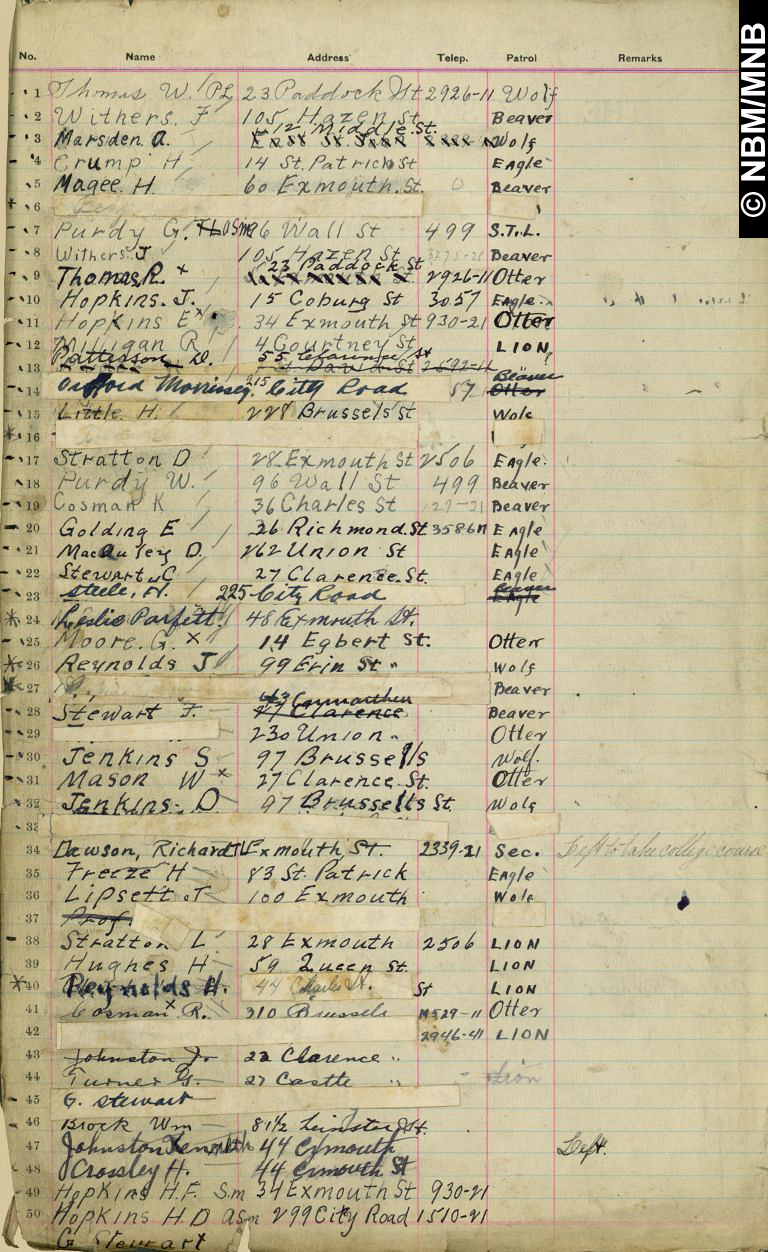 No. Name Address Telep. Patrol Remarks
1 Thomas W. PL 23 Paddock St 2926-11 Wolf
2 Withers. F 105 Hazen St Beaver
12 Middle St.
3 Marsden. A. Wolf
4 Crump H 14 St. Patrick St Eagle
5 Magee. H. 60 Exmouth. St. Beaver
6
7 Purdy G. 96 Wall St 499 S.T.L.
8 Withers. J 105 Hazen St Beaver
23 Paddock St
9 Thomas R. x 2926-11 Otter
10 Hopkins. J. 15 Coburg St 3057 Eagle.
11 Hopkins E x 34 Exmouth St 930-21 Otter
12 Milligan R 4 Courtney St LION
Pattisson D. 55 St
13 St. David St 2592-11
Beaver
14 Morrissey. 215 City Road 57 Otter
15 Little H. 228 Brussels St Wolf
16
17 Stratton D 28. Exmouth St 2506 Eagle.
18 Purdy W. 96 Wall St 499 Beaver
19 Cosman K 36 Charles St Beaver
20 Golding E 26 Richmond. St 3586 Eagle
21 MacAuley D. 262 Union St Eagle
22 Stewart C 27 Clarence. St. Eagle
Beaver
23 Steele, H. 225 City Road Eagle
24 Leslie Parfett. 48 Exmouth St.
25 Moore. G. x 14 Egbert St. Otter
26 Reynolds J 99 Erin St " Wolf
27 Beaver
43 Carmarthen
28 Stewart F. 27 Clarence Beaver
29 230 Union " Otter
30 Jenkins S 97 Brussells Wolf.
31 Mason W x 27 Clarence. St. Otter
32 Jenkins. D 97 Brussells St. Wolf
33
34 Dawson, Richard Exmouth St. 2339-21 Sec. Left to take college course
35 Freeze H 83 St. Patrick Eagle
36 Lipsett. J 100 Exmouth Wolf
37 Prof
38 Stratton L 28 Exmouth 2506 LION
39 Hughes H 59 Queen St. LION
40 Reynolds H. 44 Charles St. St LION
41 Cosman x R. 310 Brussels M529-11 Otter
42 2946-41 LION
43 Johnston Jr 22 Clarence "
44 Turner G. 27 Castle " Lion
45 G. Stewart
46 Brock Wm 81½ Leinster St.
47 Johnston Kenneth 44 Exmouth Left.
48 Crossley H. 44 Exmouth St
49 Hopkins H.F. S.m 34 Exmouth St 930-21
50 Hopkins H D ASm 299 City Road 1510-21
G Stewart
© NBM/MNB